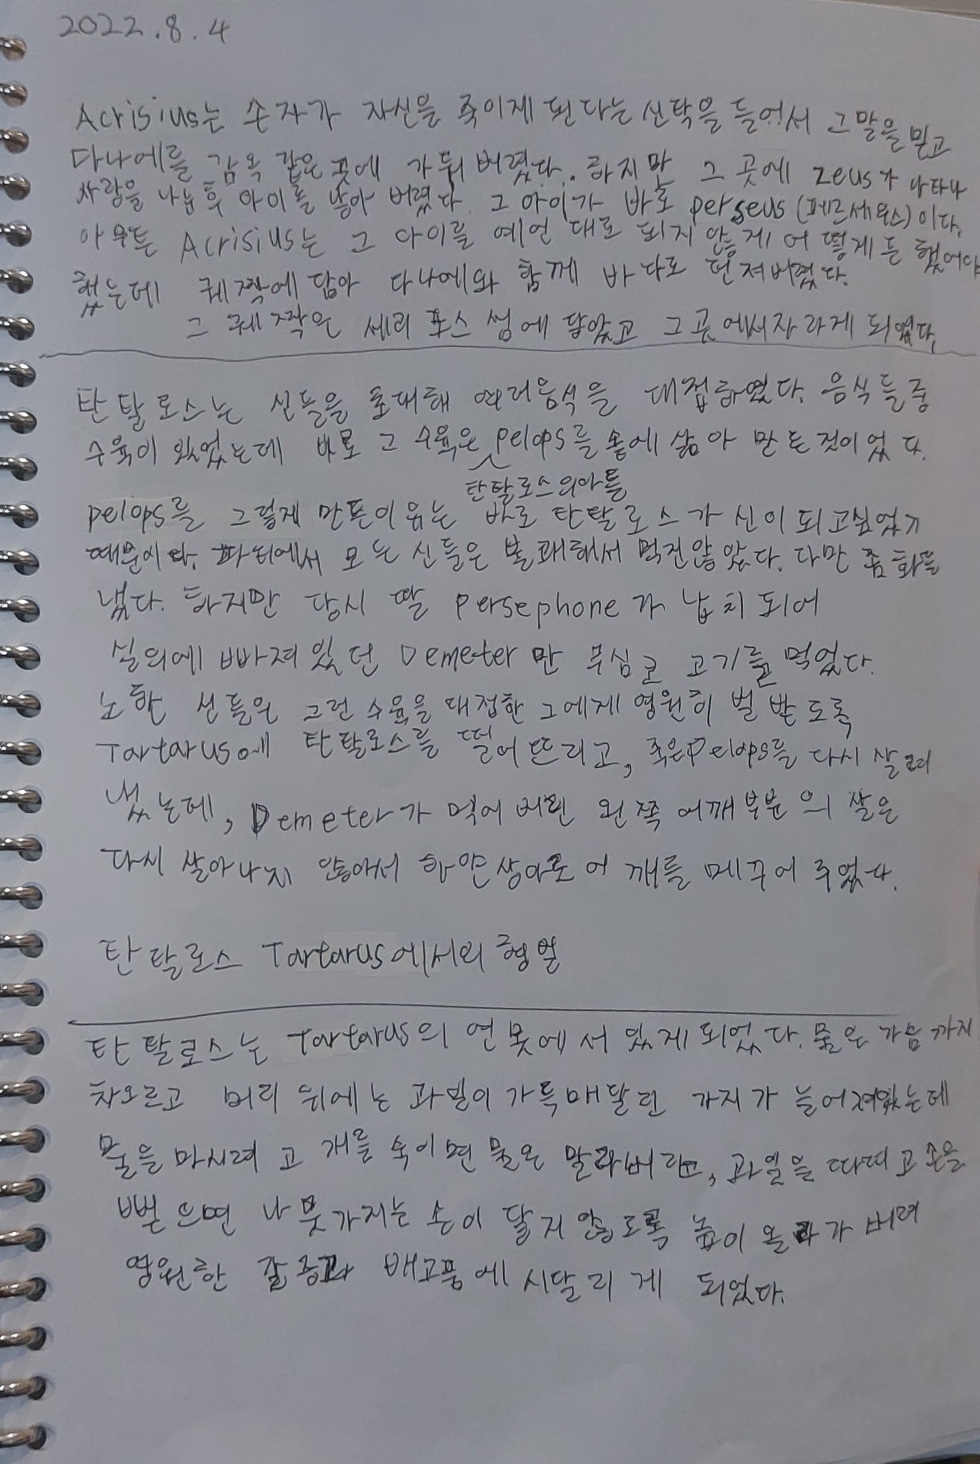 2022.8.4
Acrisius는 손자가 자신을 죽이게 된다는 신탁을 들어서 그말을 믿고
다나에를 감옥 같은 곳에 가둬 버렸다. 하지만 그 곳에 zeus가 나타나
사랑을 나눈 후 아이를 낳아 버렸다. 그 아이가 바로 perseus (페르세우스)이다.
아무튼 Acrisius는 그 아이를 예언 대로 되지 않게 어떻게든 했어야
했는데 궤짝에 담아 다나에와 함께 바다로 던져버렸다.
그 궤짝은 세리포스 섬에 닿았고 그곳에서 자라게 되었다.
탄탈로스는 신들을 초대해 여러음식을 대접하였다. 음식들중
수육이 있었는데 바로 그 수육은 pelops를 솥에 삶아 만든것이었다.
탄탈로스의아들
pelops를 그렇게 만든이유는 바로 탄탈로스가 신이 되고싶었기
때문이다. 파티에서 모든 신들은 불쾌해서 먹진않았다. 다만 좀 화를
냈다. 하지만 당시 딸 persephone가 납치되어
실의에 빠져 있던 Demeter만 무심코 고기를 먹었다.
노한 신들은 그런 수육을 대접한 그에게 영원히 벌 받도록
Tartarus에 탄탈로스를 떨어뜨리고, 죽은Pelops를 다시 살려
냈는데, Demeter가 먹어 버린 왼쪽 어깨부분의 살은
다시 살아나지 않아서 하얀상아로 어깨를 메꾸어 주었다.
탄탈로스 Tartarus에서의 형벌
탄탈로스는 Tartarus의 연못에 서 있게 되었다. 물은 가슴까지
차오르고 머리 위에는 과일이 가득매달린 가지가 늘어져있는데
물을 마시려 고개를 숙이면 물은 말라버리고, 과일을 따려고 손을
뻗으면 나뭇가지는 손이 닿지 않도록 높이 올라가 버려
영원한 갈증과 배고픔에 시달리게 되었다.